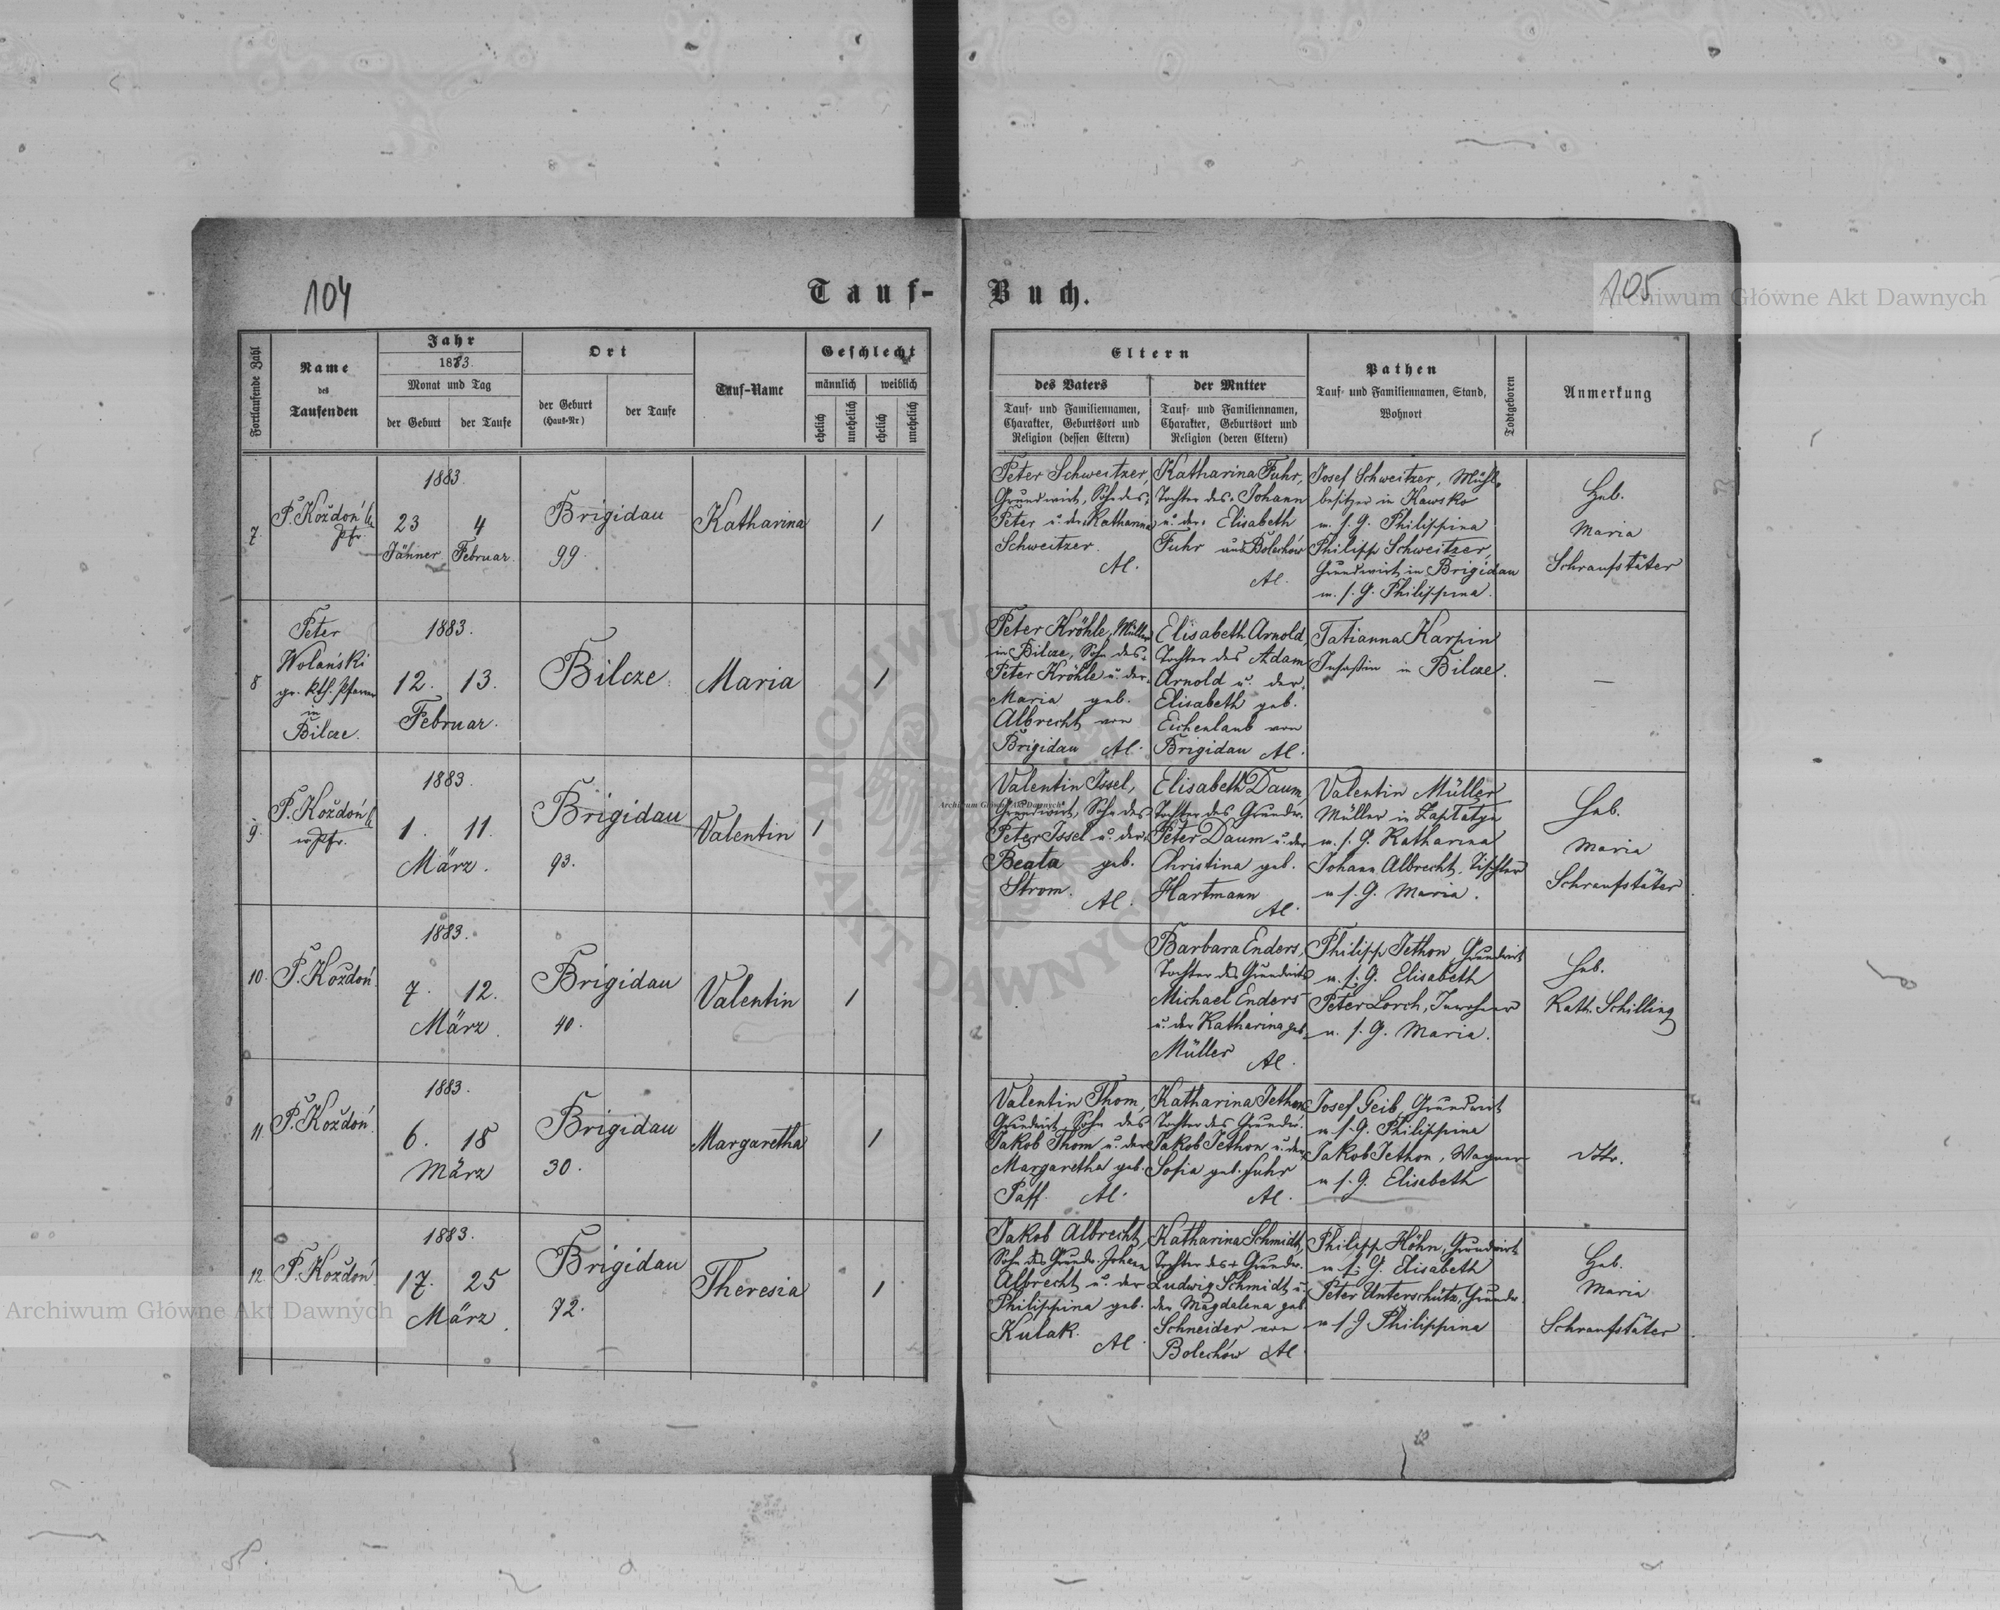 104
Tauf-
Fortlaufende Zahl
Name
des
Taufenden
Jahr
1883.
Monat und Tag
der Geburt
der Taufe
Ort
der Geburt
(Haus-Nr)
der Taufe
Tauf-Name
Geschlecht
männlich
weiblich
ehelich
unehelich
ehelich
unehelich
7
P. Koždoń
Pfr.
1883
23 4
Jähner Februar.
Brigidau
99.
Katharina
1
8
Peter
Wolański
gr. kth. Pfarrer
in
Bilcze.
1883.
12. 13.
Februar.
Bilcze.
Maria
1
9.
P. Koždoń
Pfr.
1883
1. 11.
März.
Brigidau
93.
Valentin
1
10.
P. Koždoń
1883.
7. 12.
März.
Brigidau
40.
Valentin
1
11.
P. Koždoń
1883.
6. 18
März
Brigidau
30.
Margaretha
1
12.
P. Koždoń
1883.
17. 25
März.
Brigidau
72.
Theresia
1
105
Buch.
Eltern
des Vaters
Tauf- und Familiennamen,
Charakter, Geburtsort und
Religion (dessen Eltern)
der Mutter
Tauf- und Familiennamen,
Charakter, Geburtsort und
Religion (deren Eltern)
Pathen
Tauf- und Familiennamen, Stand,
Wohnort
Todtgeboren
Anmerkung
Peter Schweitzer,
Grundwirt, Sohn des
Peter u. der Katharina
Schweitzer.
Al.
Katharina Fuhr,
Tochter des Johann
u. der Elisabeth
Fuhr aus Bolechów
Al.
Josef Schweitzer, Mühl-
besitzer in Kawsko
u. s. G. Philippina
Philipp Schweitzer,
Grundwirt in Brigidau
u. s. G. Philippina.
Heb.
Maria
Schraufstäter
Peter Kröhle, Müller
in Bilcze, Sohn des
Peter Kröhle u. der
Maria geb.
Albrecht von
Brigidau Al.
Elisabeth Arnold,
Tochter des Adam
Arnold u. der
Elisabeth geb.
Eichenlaub von
Brigidau Al.
Tatianna Karpin
Insaßin in Bilcze.
—
Valentin Issel,
Grundwirt, Sohn des
Peter Issel u. der
Beata geb.
Strom. Al.
Elisabeth Daum,
Tochter des Grundw.
Peter Daum u. der
Christina geb.
Hartmann
Al.
Valentin Müller
Müller in Zaptatyn
u. s. G. Katharina
Johann Albrecht, Tischler
u. s. G. Maria.
Heb.
Maria
Schraufstäter
Barbara Enders,
Tochter des Grundwirts
Michael Enders
u. der Katharina geb.
Müller Al.
Philipp Jethon, Grundwirt
u. s. G. Elisabeth
Peter Lorch, Inwohner
u. s. G. Maria.
Heb.
Kath. Schilling
Valentin Thom,
Grundwirt, Sohn des
Jakob Thom u. der
Margaretha geb.
Paff. Al.
Katharina Jethon
Tochter des Grundw.
Jakob Jethon u. der
Sofia geb. Fuhr
Al.
Josef Geib, Grundwirt
u. s. G. Philippina
Jakob Jethon, Wagner
u. s. G. Elisabeth
Jakob Albrecht,
Sohn des Grundw. Johann
Albrecht u. der
Philippina geb.
Kulak. Al.
Katharina Schmidt,
Tochter des + Grundw.
Ludwig Schmidt u.
der Magdalena geb.
Schneider von
Bolechów Al.
Philipp Höhn, Grundwirt
u. s. G. Elisabeth
Peter Unterschütz, Grundw.
u. s. G. Philippina
Heb.
Maria
Schraufstäter
Archiwum Główne Akt Dawnych
Archiwum Główne Akt Dawnych
Archiwum Główne Akt Dawnych